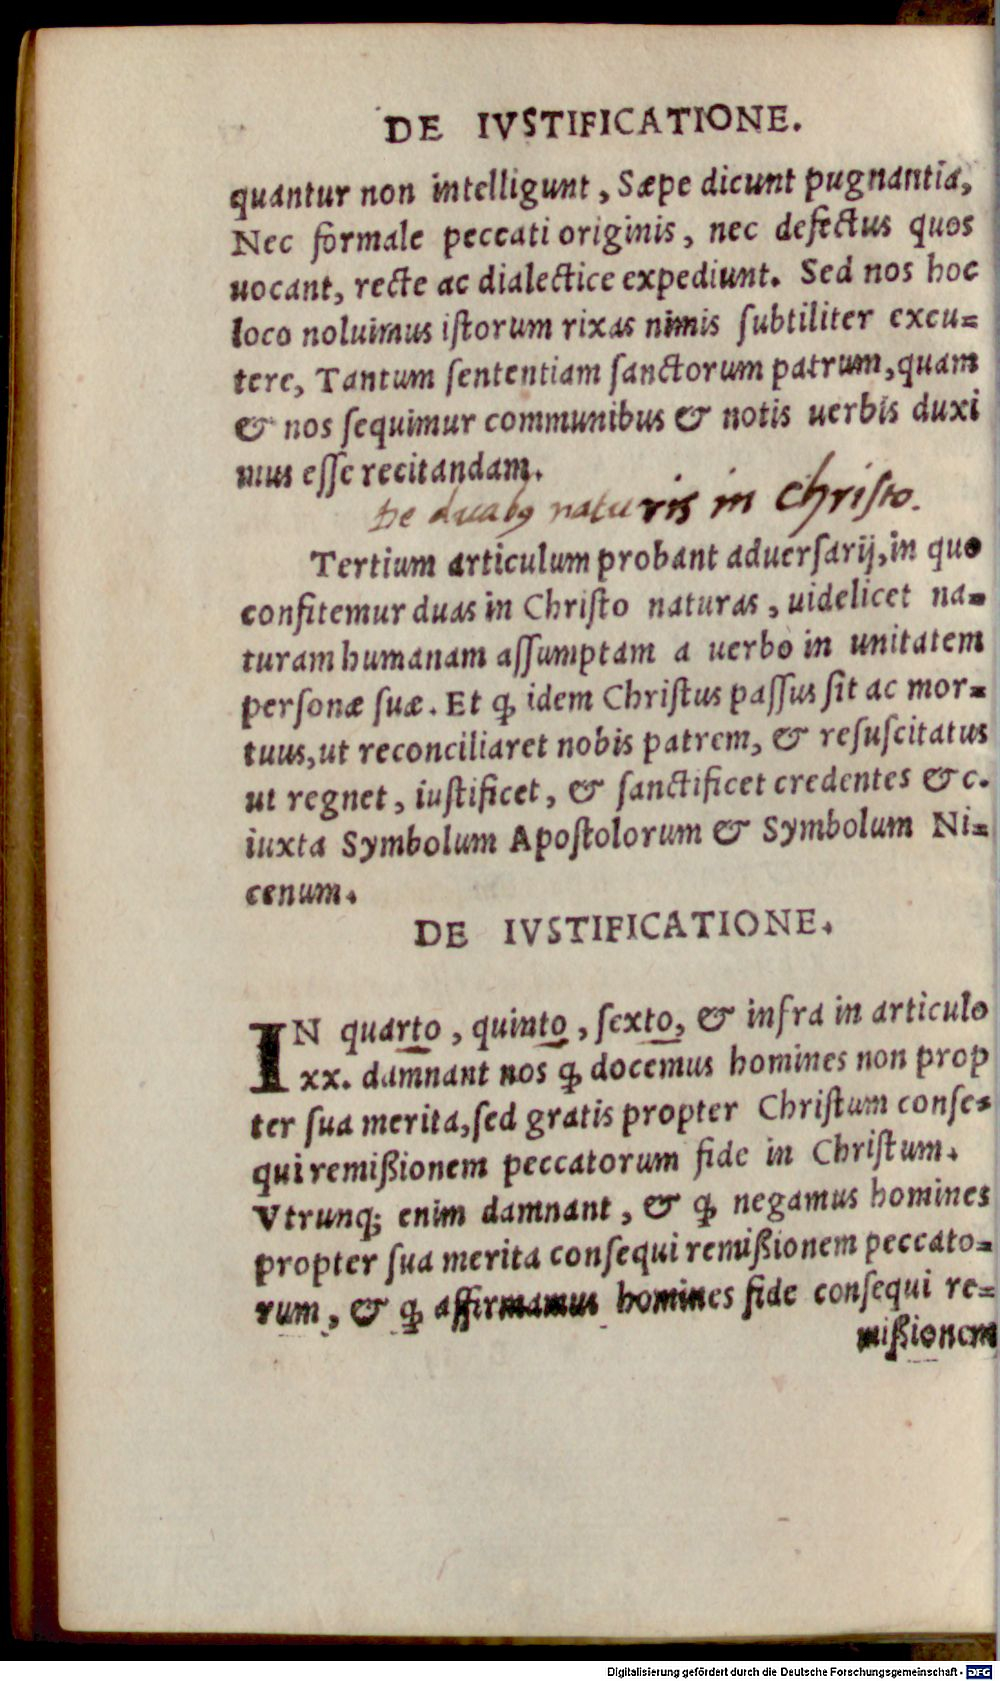 DE IVSTIFICATIONE.
quantur non intelligunt, Sæpe dicunt pugnantia,
Nec formale peccati originis, nec defectus quos
uocant, recte ac dialectice expediunt. Sed nos hoc
loco noluimus iſtorum rixas nimis ſubtiliter excu=
tere, Tantum ſententiam ſanctorum patrum, quam
& nos ſequimur communibus & notis uerbis duxi
mus eſſe recitandam.
De duabꝰ naturis in Chriſto.
Tertium articulum probant aduerſarij, in quo
confitemur duas in Chriſto naturas, uidelicet na=
turam humanam aſſumptam a uerbo in unitatem
perſonæ ſuæ. Et ꝙ idem Chriſtus paſſus ſit ac mor=
tuus, ut reconciliaret nobis patrem, & reſuſcitatus
ut regnet, iuſtificet, & ſanctificet credentes &c.
iuxta Symbolum Apoſtolorum & Symbolum Ni=
cenum.
DE IVSTIFICATIONE.
IN quarto, quinto, ſexto, & infra in articulo
xx. damnant nos ꝙ docemus homines non prop
ter ſua merita, ſed gratis propter Chriſtum conſe=
qui remißionem peccatorum fide in Chriſtum.
Vtrunq; enim damnant, & ꝙ negamus homines
propter ſua merita conſequi remißionem peccato=
rum, & ꝙ affirmamus homines fide conſequi re=
mißionem
Digitalisierung gefördert durch die Deutsche Forschungsgemeinschaft - DFG